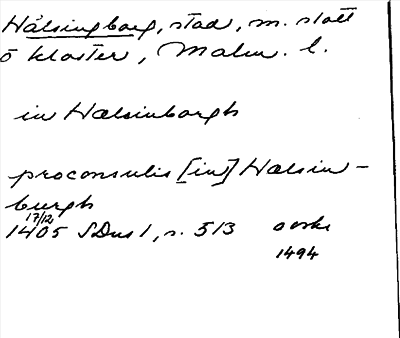 Hälsingborg, stad, m. slott
o kloster, Malm. l.
in Hælsinborgh
proconsulis [in] Hælsin-
burgh
17/12
1405 SDns 1, s. 513 avskr
1494